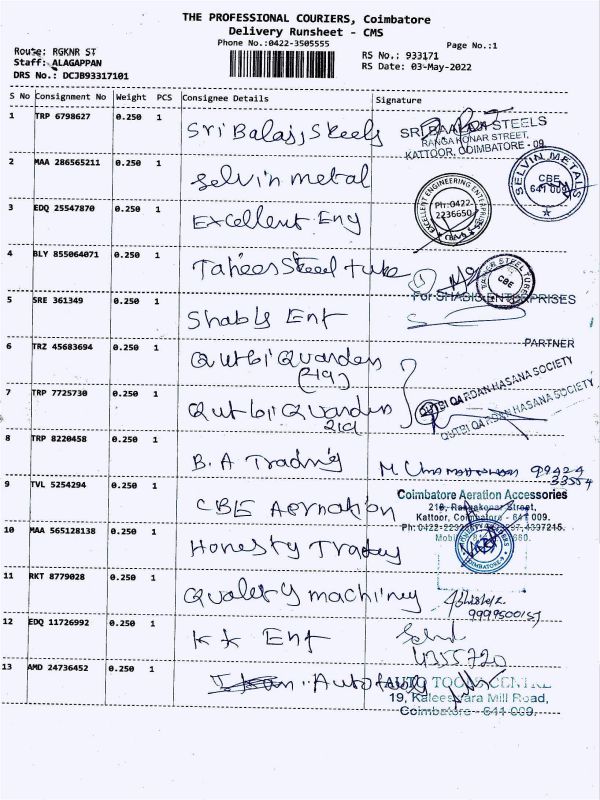 THE PROFESSIONAL COURIERS, Coimbatore
Delivery Runsheet - CMS
Phone No.:0422-3505555
Page No.:1
Route: RGKNR ST
Staff: ALAGAPPAN
DRS No.: DCJB93317101
RS No.: 933171
RS Date: 03-May-2022
S No Consignment No Weight PCS Consignee Details Signature
1 TRP 6798627 0.250 1 Sri Balaji Steels
SRI BALAJI STEELS
RANGA KONAR STREET,
KATTOOR, COIMBATORE - 09
2 MAA 286565211 0.250 1 Selvin metal
SELVIN METALS
CBE
641 009
3 EDQ 25547870 0.250 1 Excellent Eng
EXCELLENT ENGINEERING ENTERPRISES
Ph:0422-
2236650
4 BLY 855064071 0.250 1 Steel tube
STEEL TUBES
CBE
5 SRE 361349 0.250 1 Ent
For ENTERPRISES
PARTNER
6 TRZ 45683694 0.250 1 Qutbi Quardan
(219)
7 TRP 7725730 0.250 1 Qutbi Quardan
219
QUTBI QARDAN HASANA SOCIETY
QUTBI QARDAN HASANA SOCIETY
8 TRP 8220458 0.250 1 B.A Trading
99424
33554
9 TVL 5254294 0.250 1 CBE Aernation
Coimbatore Aeration Accessories
218, Rangakonar Street,
Kattoor, Coimbatore - 641 009.
10 MAA 565128138 0.250 1 Honesty Traders
COIMBATORE-9
11 RKT 8779028 0.250 1 Quality machiney
9999500157
12 EDQ 11726992 0.250 1 KK Ent
4355720
13 AMD 24736452 0.250 1 Auto tools
AUTO TOOLS CENTRE
19, Kaleeswara Mill Road,
Coimbatore - 641 009.